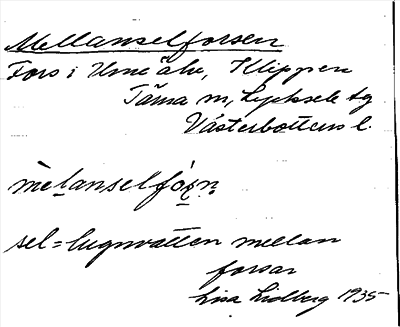 Mellanselforsen
Fors i Ume älv, Klippen
Tärna sn, Lycksele tg
Västerbottens l.
mèlanselfóṣṇ
sel = lugnvatten mellan
forsar
Lisa Lidberg 1935